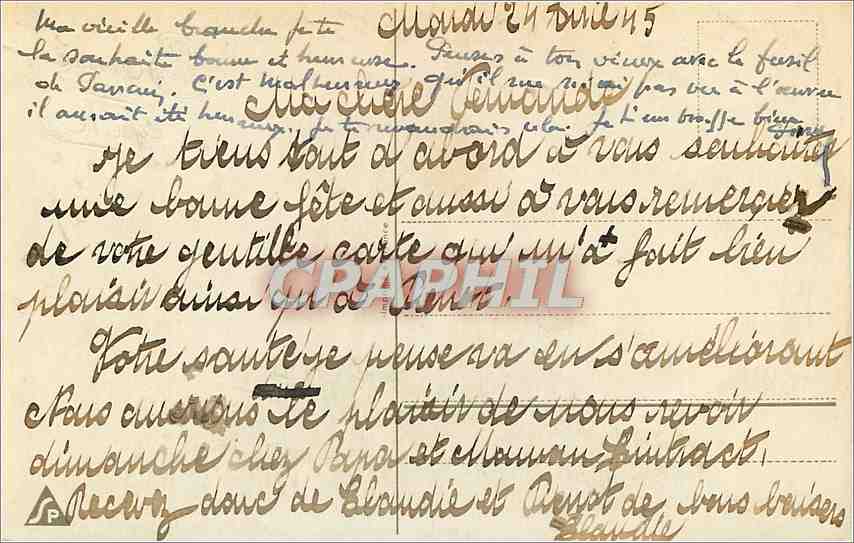 Mardi 24 Avril 45
Ma vieille branche je te
la souhaite bonne et heureuse. Penses à ton vieux avec le fusil
de Tarzan. C'est malheureux qu'il ne m'ai pas vu à l'œuvre
il aurait été heureux. Je te revaudrais cela. Je t'embrasse bien
Ma chère Fernande
Je tiens tout d'abord à vous souhaiter
une bonne fête et aussi à vous remercier
de votre gentille carte qui m'a fait bien
plaisir ainsi qu'à René.
Votre santé je pense va en s'améliorant
Nous aurions le plaisir de vous revoir
dimanche chez Papa et Maman
Recevez donc de Claudie et René de bons baisers
Claudie
CPAPHIL
SP